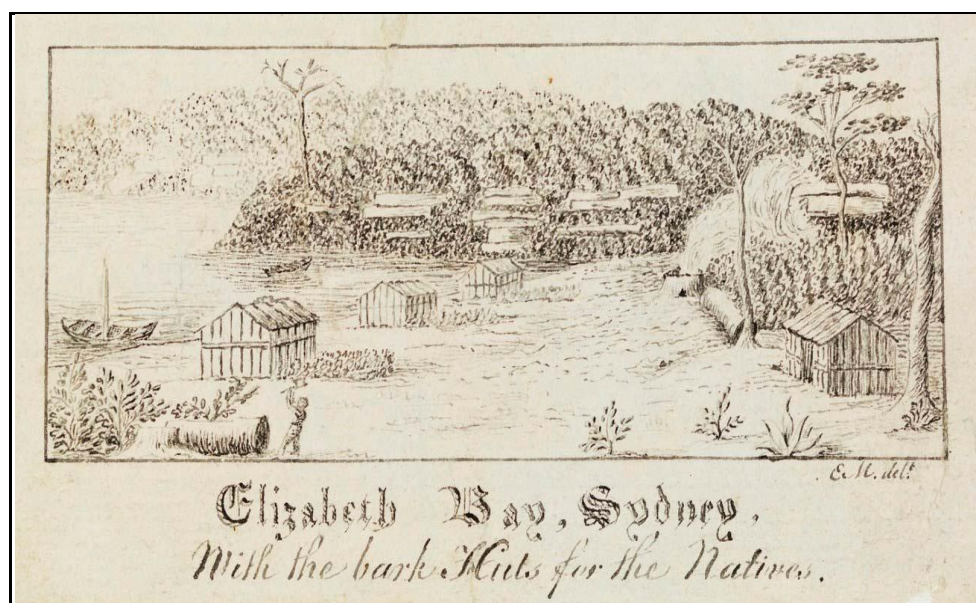 E.M. del.t
Elizabeth Bay, Sydney.
With the bark Huts for the Natives.